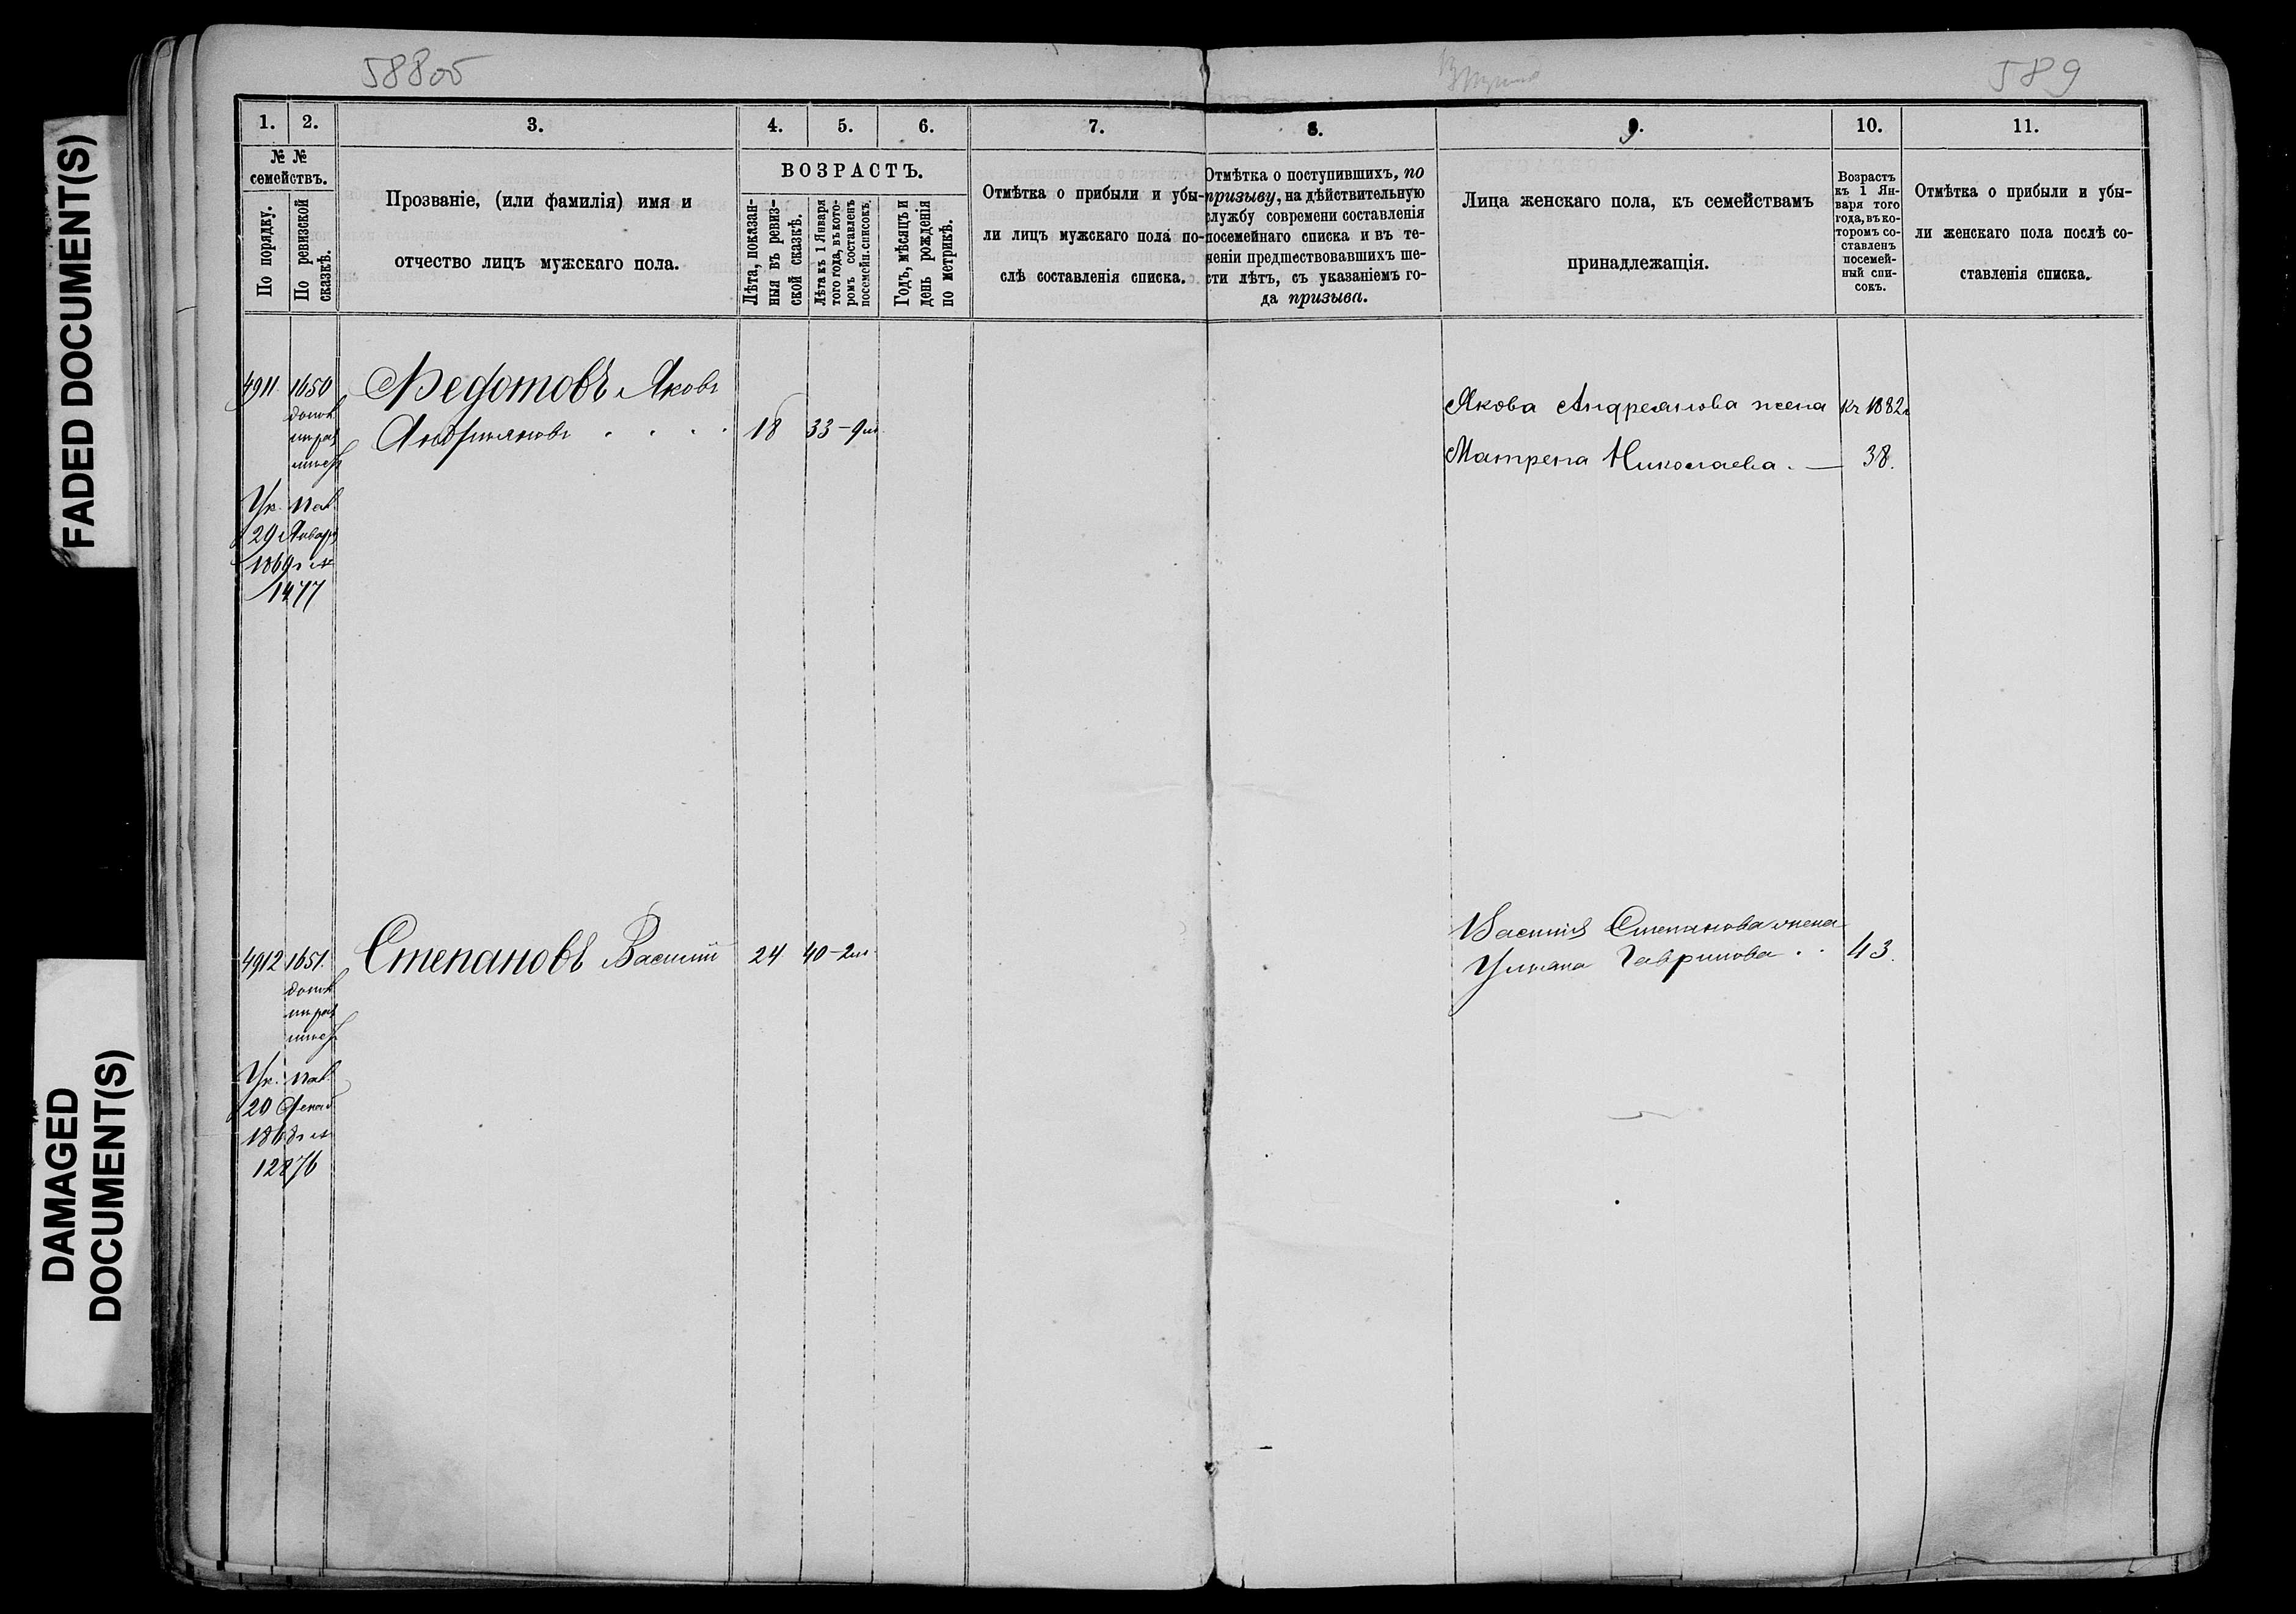 FADED DOCUMENT(S)
DAMAGED
DOCUMENT(S)
588об
589
1.
2.
3.
4.
5.
6.
7.
8.
9.
10.
11.
№ №
семействъ.
По порядку.
По ревизской
сказкѣ.
Прозваніе, (или фамилія) имя и
отчество лицъ мужскаго пола.
ВОЗРАСТЪ.
Лѣта, показан-
ныя въ ревиз-
ской сказкѣ.
Лѣта къ 1 Января
того года, въ кото-
ромъ составленъ
посемейн. списокъ.
Годъ, мѣсяцъ и
день рожденія
по метрикѣ.
Отмѣтка о прибыли и убы-
ли лицъ мужскаго пола по-
слѣ составленія списка.
Отмѣтка о поступившихъ, по
призыву, на дѣйствительную
службу современи составленія
посемейнаго списка и въ те-
ченіи предшествовавшихъ ше-
сти лѣтъ, съ указаніемъ го-
да призыва.
Лица женскаго пола, къ семействамъ
принадлежащія.
Возрастъ
къ 1 Ян-
варя того
года, въ ко-
торомъ со-
ставленъ
посемей-
ный спи-
сокъ.
Отмѣтка о прибыли и убы-
ли женскаго пола послѣ со-
ставленія списка.
4911
1650
Ѳедотовъ Яковъ
Андрияновъ
18
33-9м
Якова Андреянова жена
къ 1882г
Матрена Николаева.
38.
Ук. Пал.
29 Января
1869г №
1477
4912
1651.
Степановъ Василий
24
40-2м
Василия Степанова жена
Ульяна Гаврилова
43.
Ук. Пал.
20 Декаб
1868г №
12876